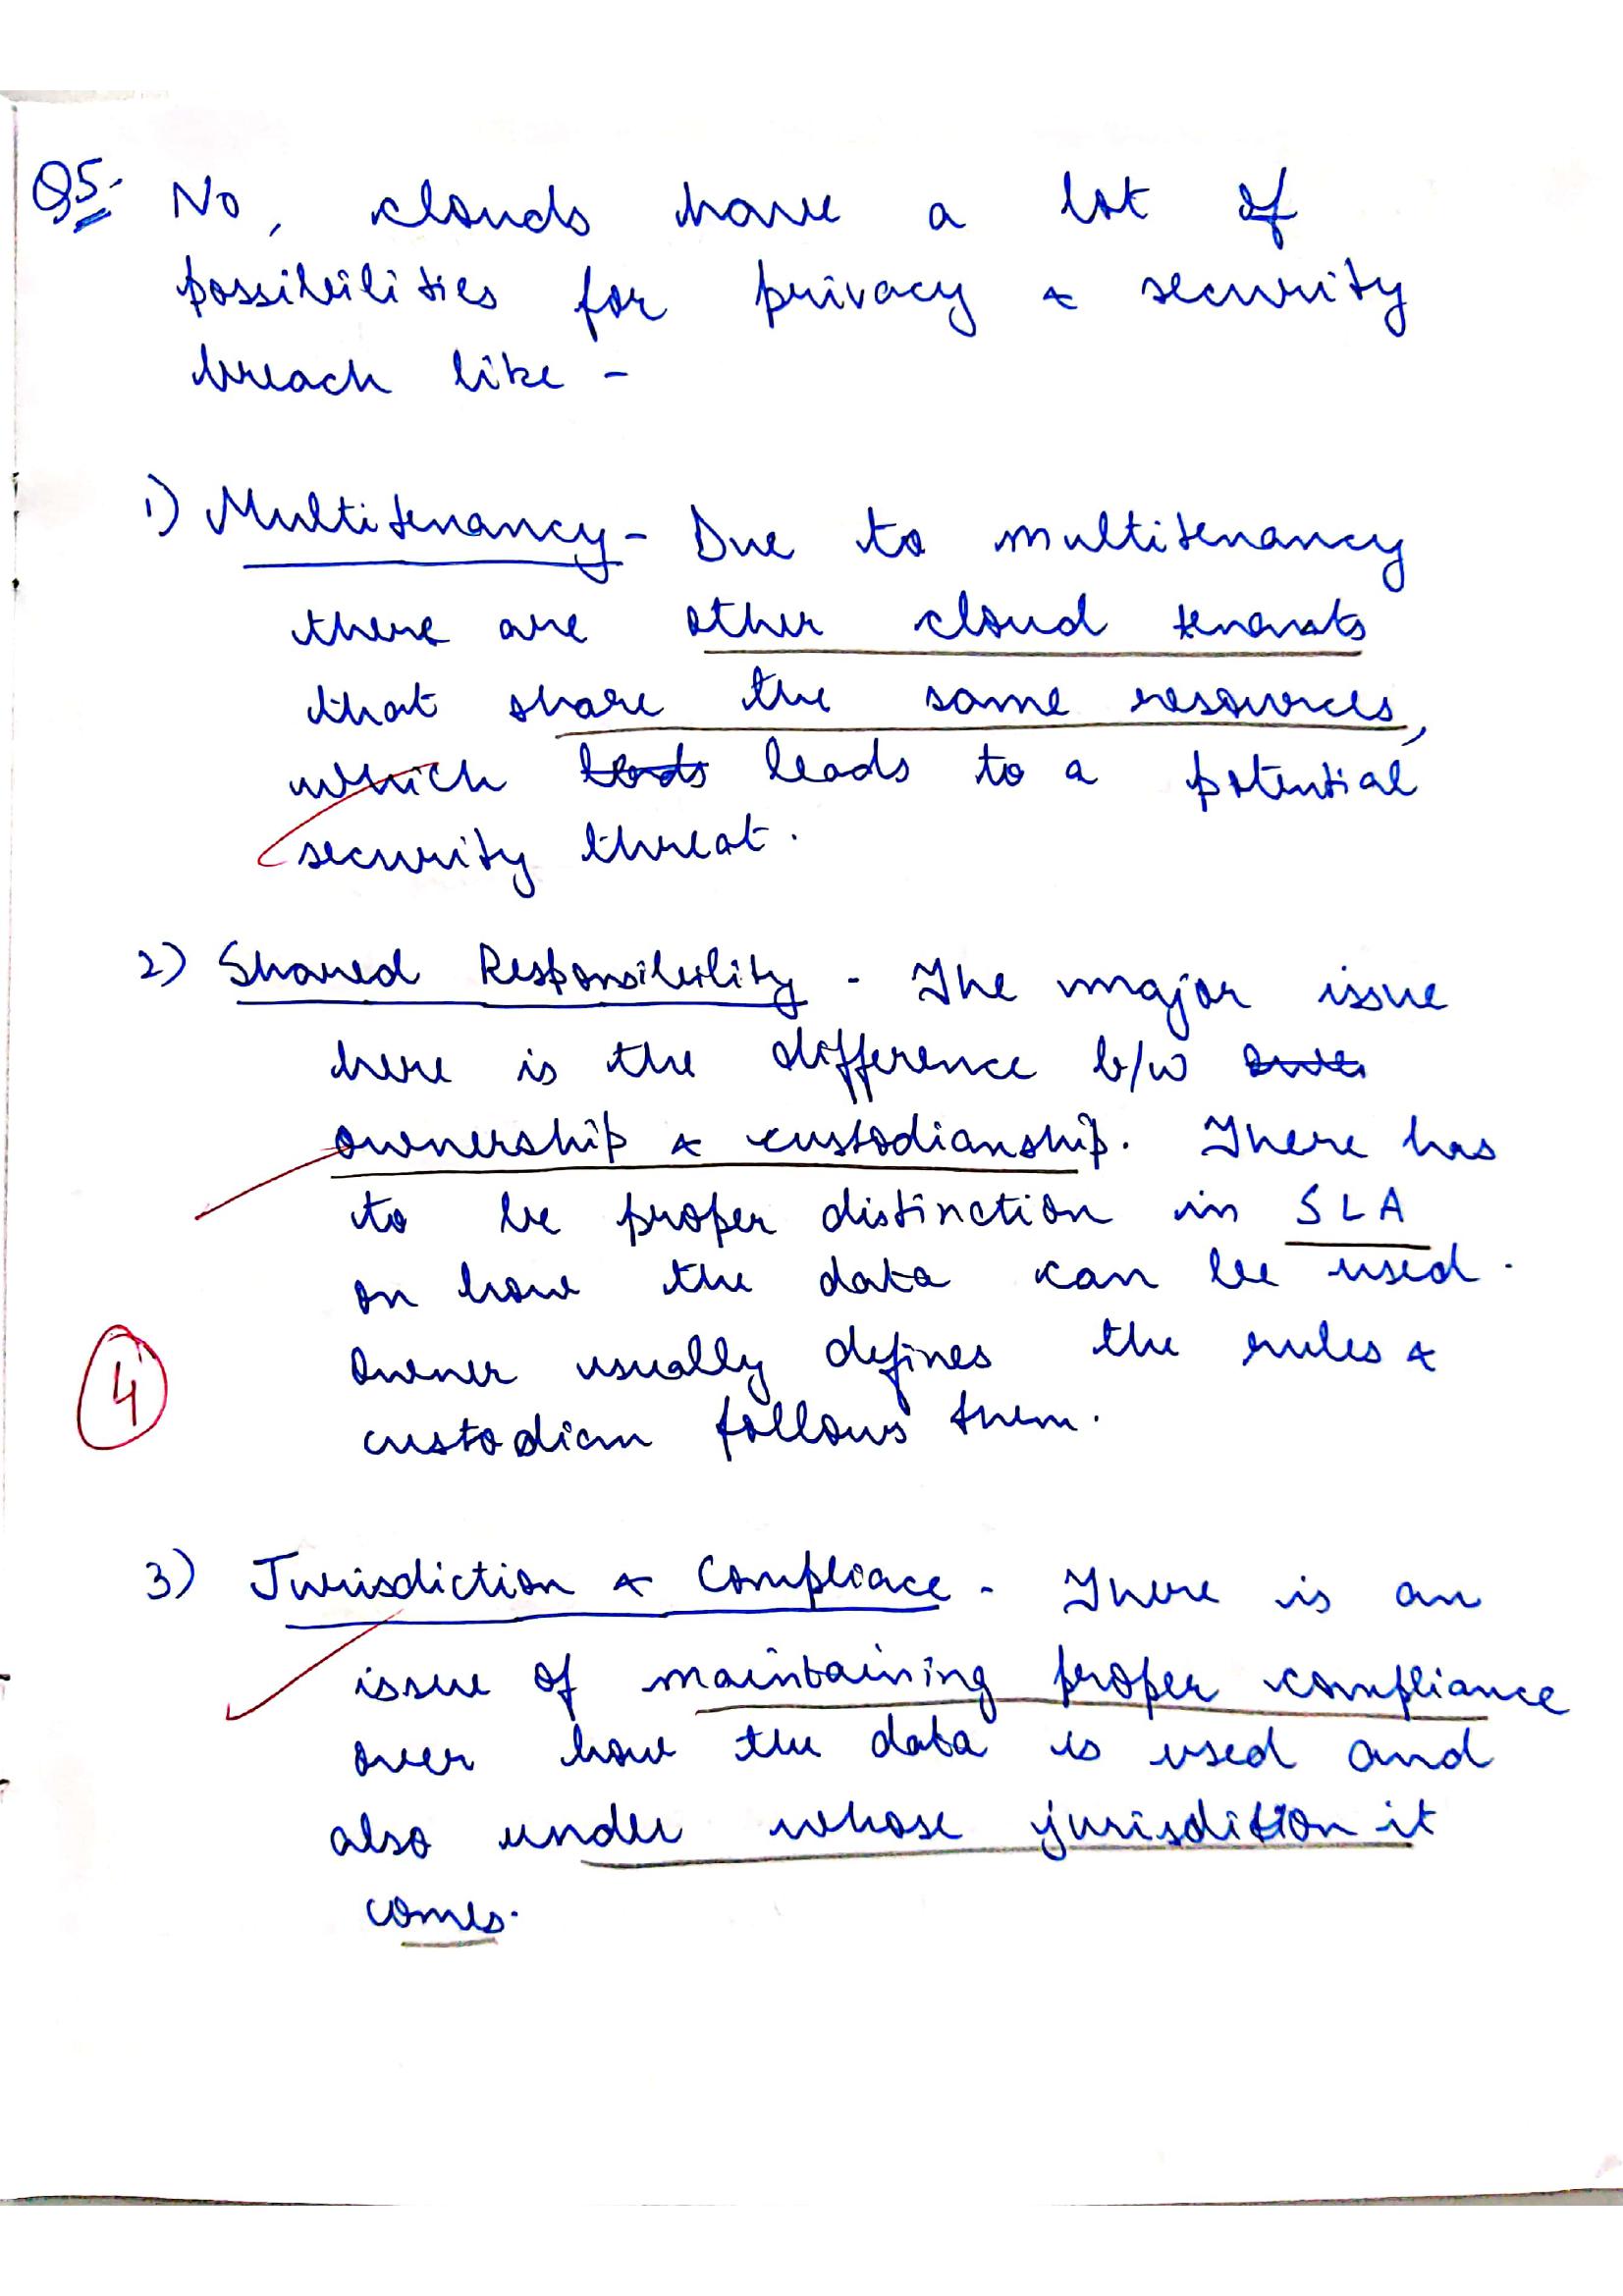 Q5. No, clouds have a lot of
possibilities for privacy & security
breach like -
1) Multitenancy - Due to multitenancy
there are other cloud tenants
that share the same resources,
which leads to a potential
security threat.
2) Shared Responsibility - The major issue
here is the difference b/w
ownership & custodianship. There has
to be proper distinction in SLA
on how the data can be used.
Owner usually defines the rules &
custodian follows them.
4
3) Jurisdiction & Compliace - There is an
issue of maintaining proper compliance
over how the data is used and
also under whose jurisdition it
comes.